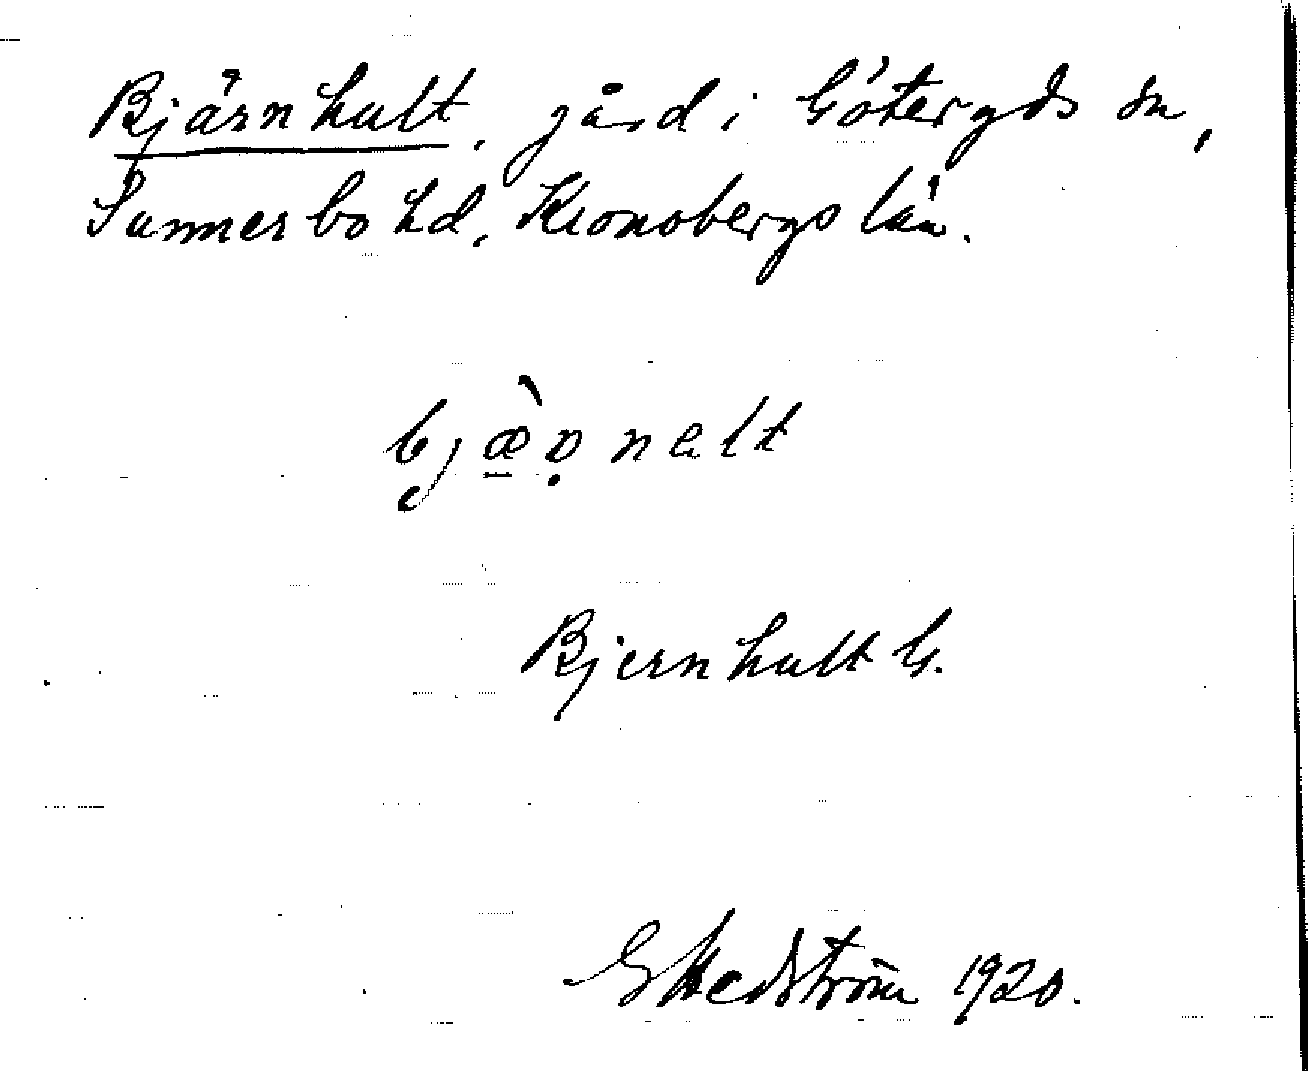 Bjärnhult, gård i Göteryds sn,
Sunnerbo hd, Kronobergs län.
Bjernhult G.
G Hedström 1920.